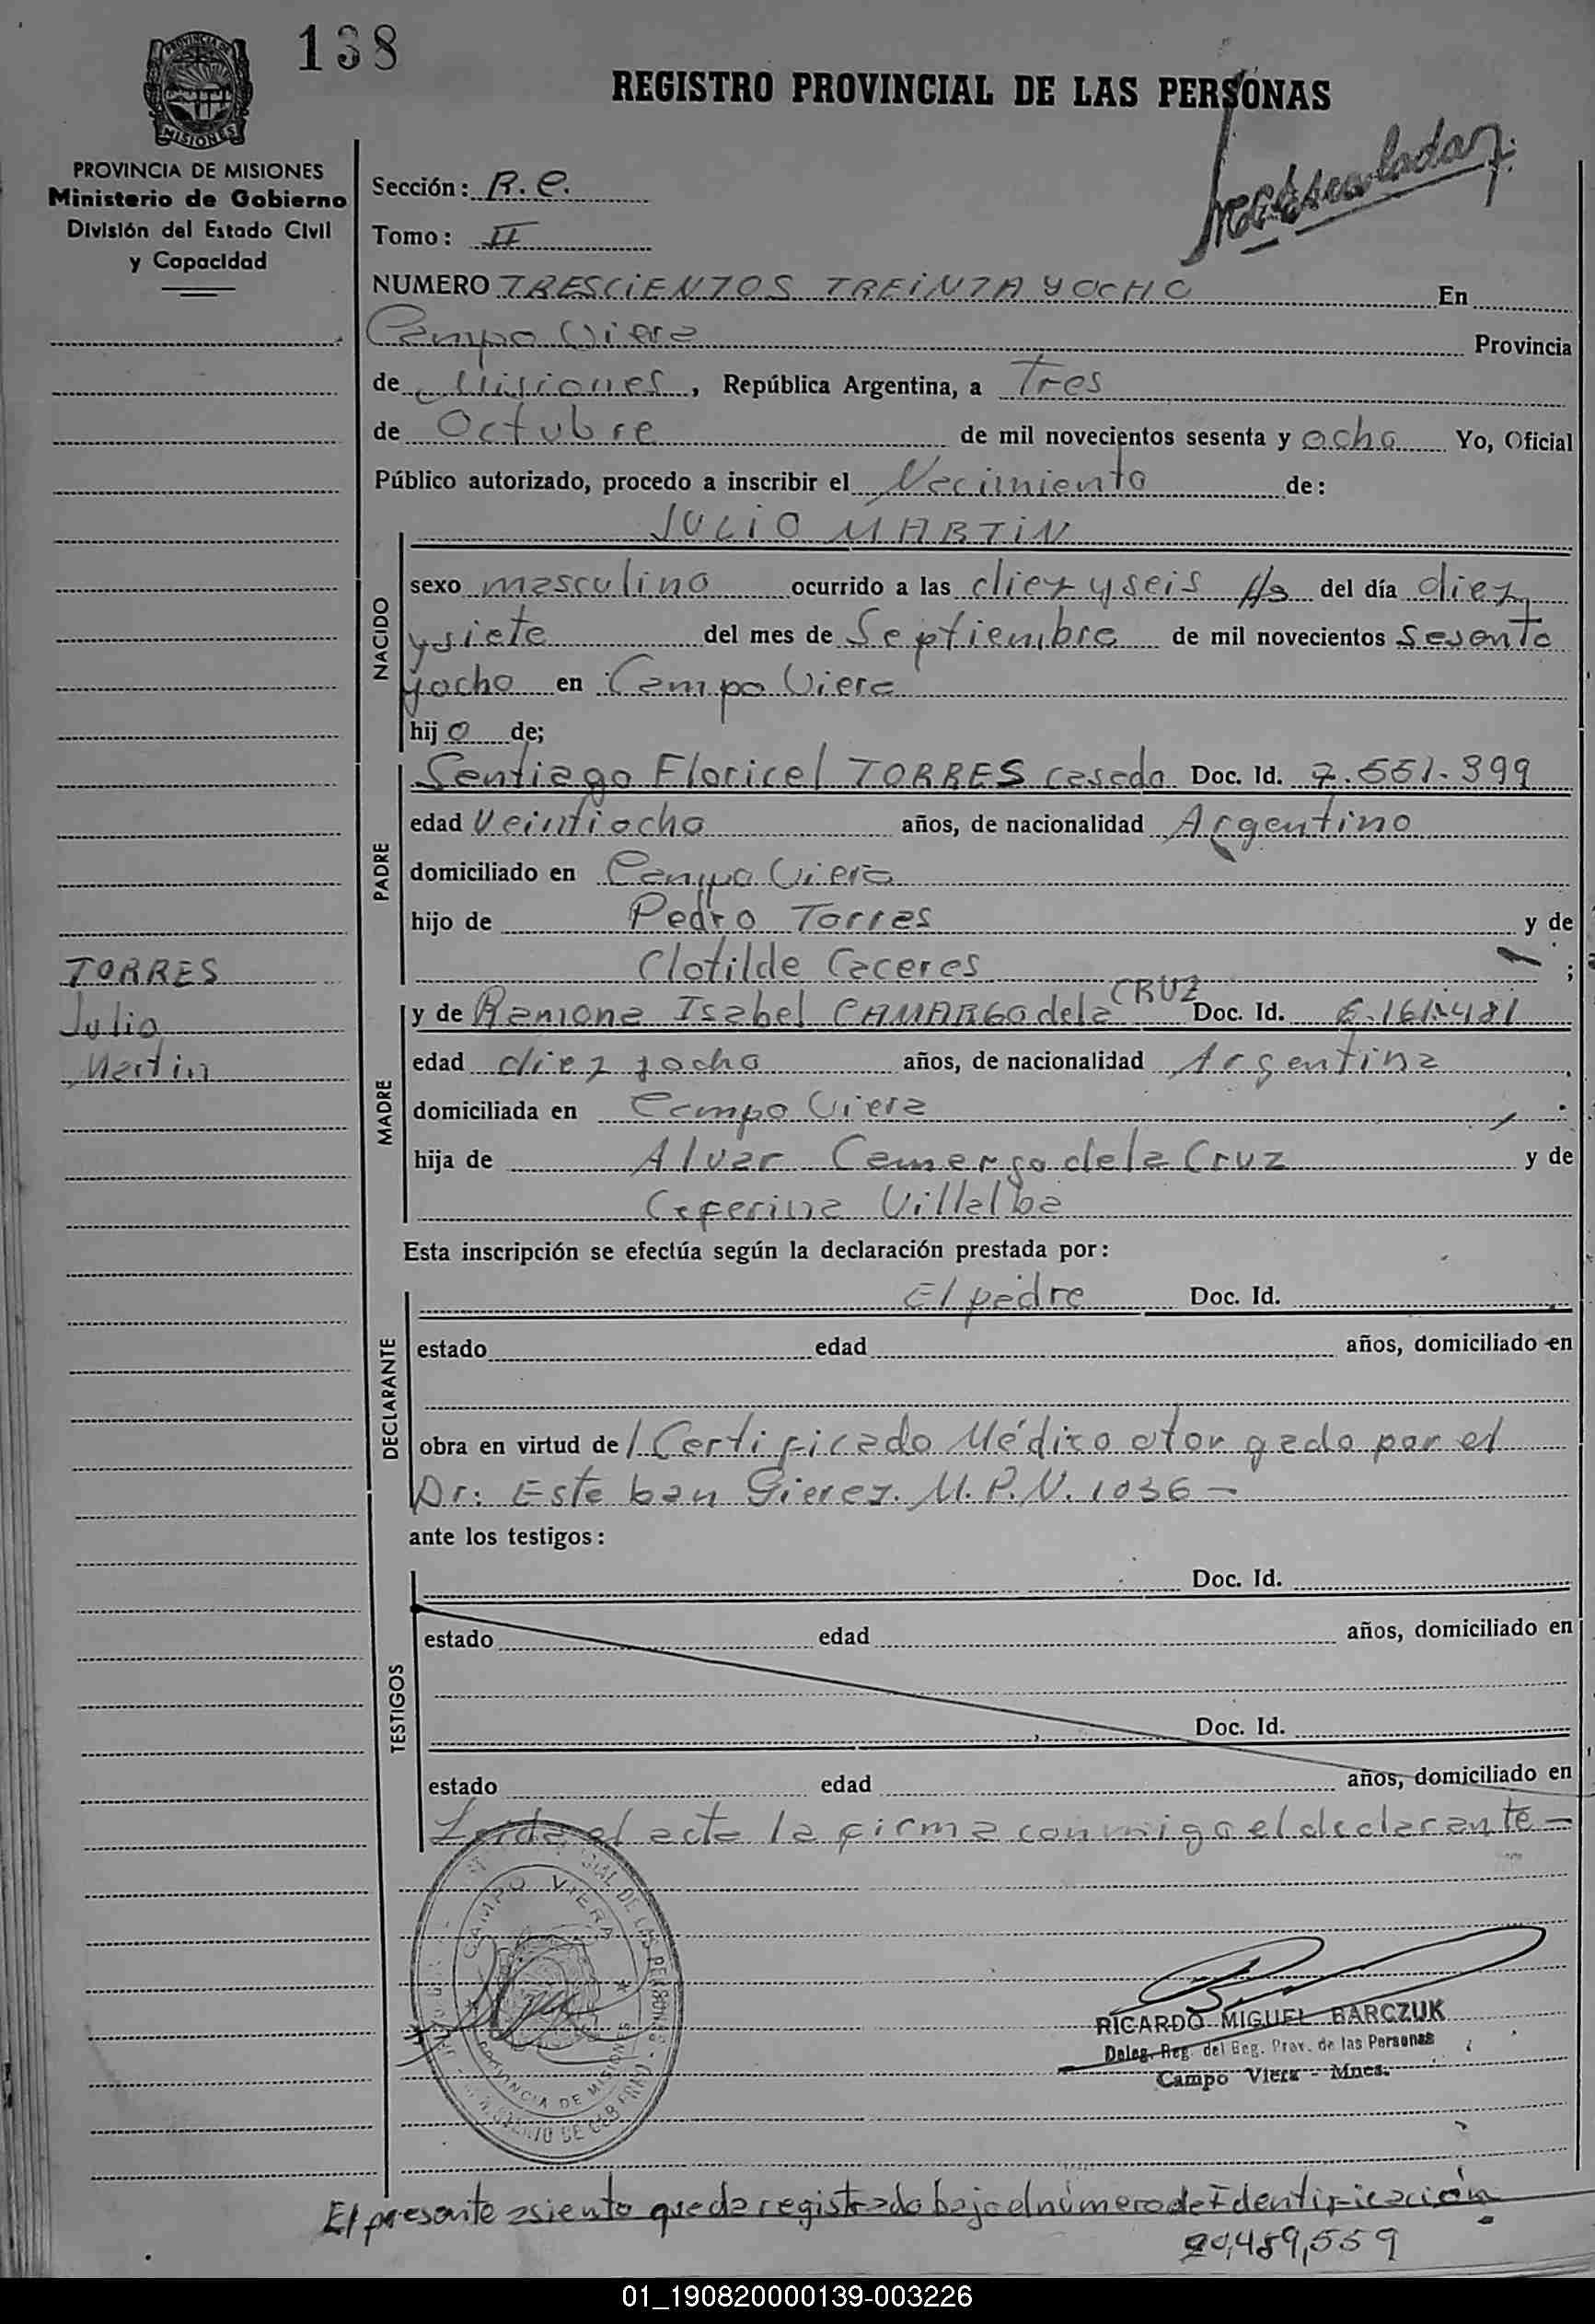 138
REGISTRO PROVINCIAL DE LAS PERSONAS
PROVINCIA DE MISIONES
MISIONES
PROVINCIA DE MISIONES
Ministerio de Gobierno
División del Estado Civil
y Capacidad
Sección: R.e.
Tomo: II
NUMERO TRESCIENTOS TREINTA Y OCHO En
Campo Viera Provincia
de Misiones, República Argentina, a Tres
de Octubre de mil novecientos sesenta y ocho Yo, Oficial
Público autorizado, procedo a inscribir el Nacimiento de:
JULIO MARTIN
NACIDO
sexo masculino ocurrido a las diez y seis Hs del día diez
y siete del mes de Septiembre de mil novecientos sesenta
y ocho en Campo Viera
hijo de;
PADRE
Santiago Floricel TORRES casado Doc. Id. 7.551.399
edad Veintiocho años, de nacionalidad Argentino
domiciliado en Campo Viera
hijo de Pedro Torres y de
Clotilde Caceres ;
TORRES
Julio
Martin
MADRE
y de Ramona Isabel CAMARGO de la CRUZ Doc. Id.
edad diez y ocho años, de nacionalidad Argentina
domiciliada en Campo Viera
hija de Alvar Camargo de la Cruz y de
Ceferina Villalba
Esta inscripción se efectúa según la declaración prestada por:
DECLARANTE
El padre Doc. Id.
estado edad años, domiciliado en
obra en virtud de l Certificado Médico otorgado por el
Dr: Esteban Gierez. M.P.N. 1036 —
ante los testigos:
TESTIGOS
Doc. Id.
estado edad años, domiciliado en
Doc. Id.
estado edad años, domiciliado en
Leida el acta la firma conmigo el declarante —
CAMPO VIERA
PROVINCIA DE MISIONES
RICARDO MIGUEL BARCZUK
Deleg. Reg. del Reg. Prov. de las Personas
Campo Viera - Mnes.
El presente asiento queda registrado bajo el número de Identificación
20,489,559
01_190820000139-003226